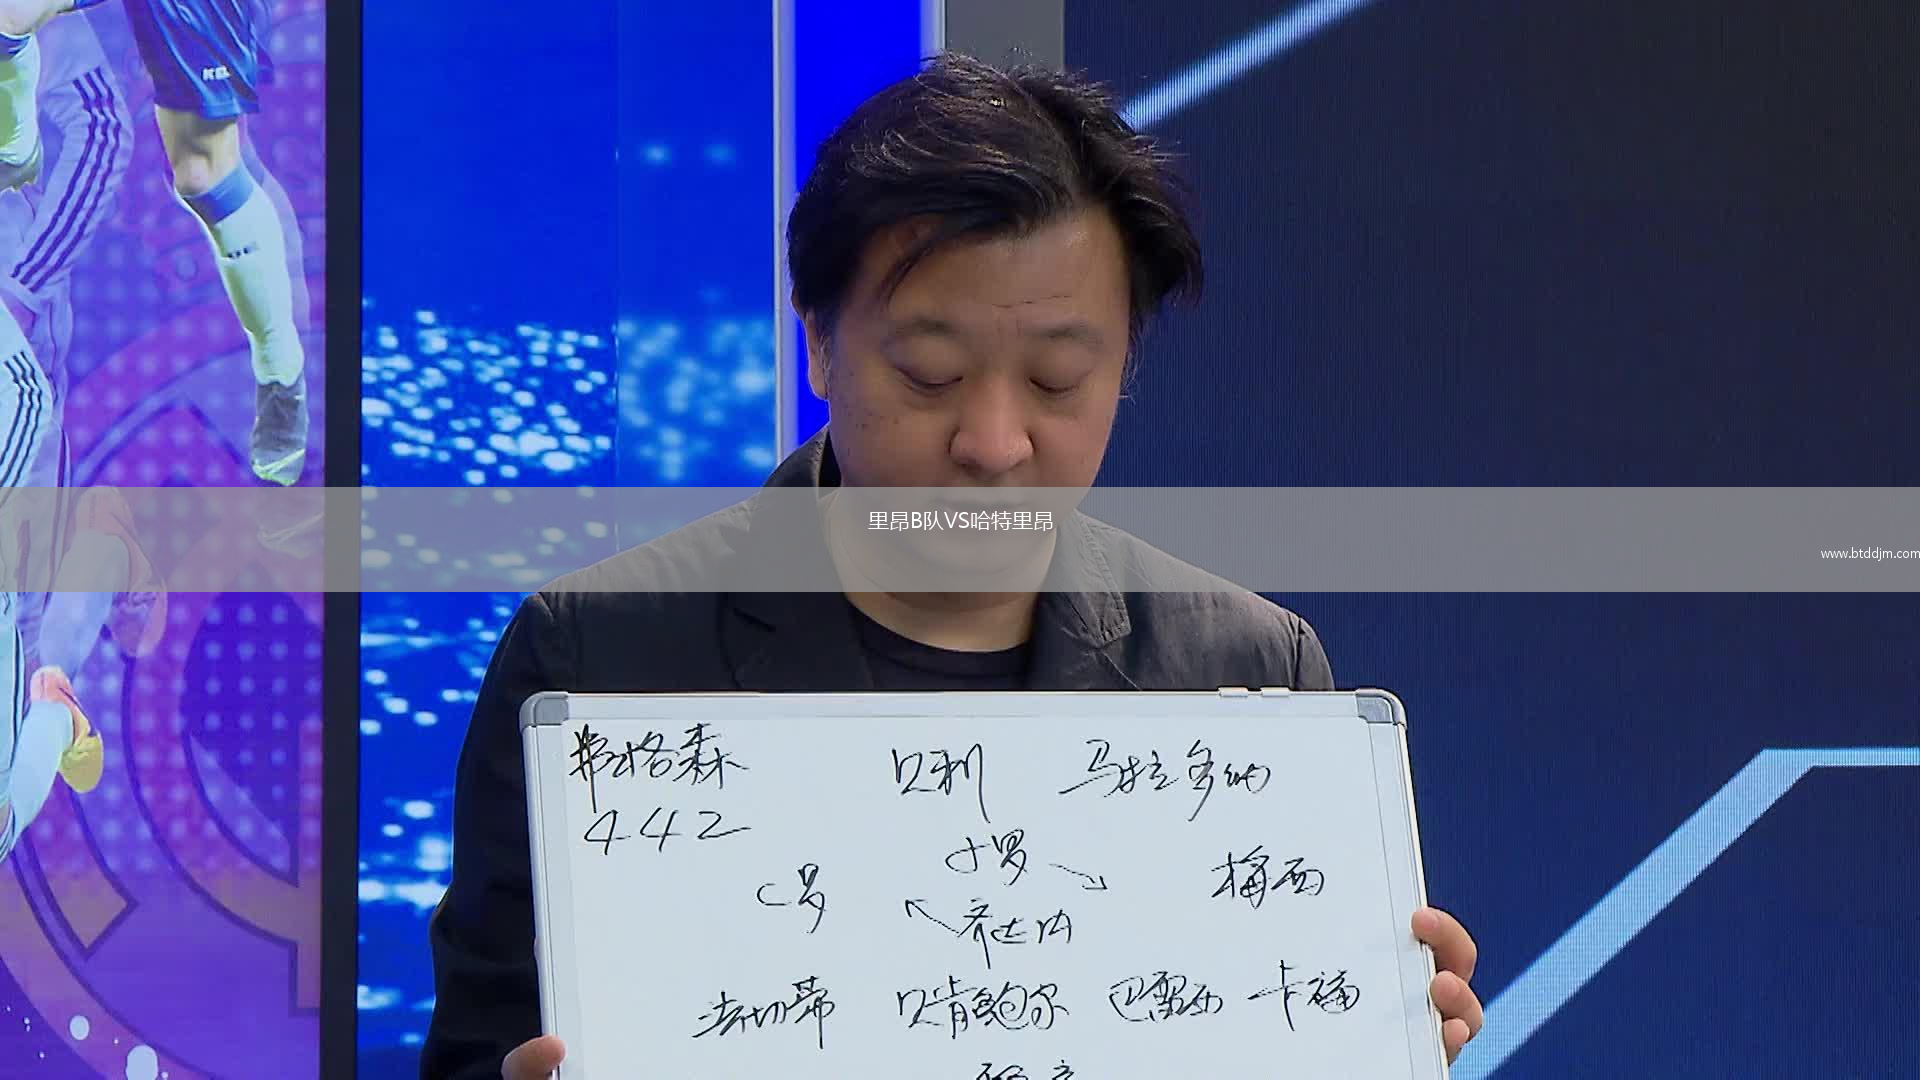 里昂B队VS哈特里昂
www.btddjm.com
弗格森 贝利 马拉多纳
442
小罗
C罗 梅西
齐达内
法切蒂 贝肯鲍尔 巴雷西 卡福